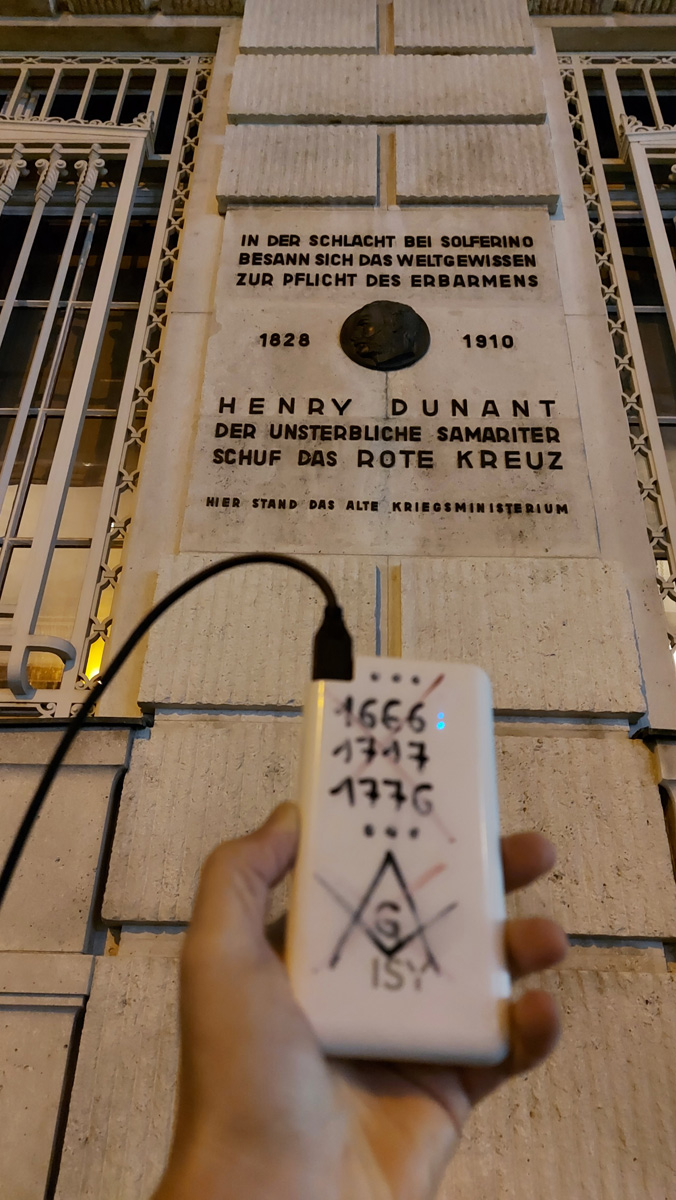 IN DER SCHLACHT BEI SOLFERINO
BESANN SICH DAS WELTGEWISSEN
ZUR PFLICHT DES ERBARMENS
1828 1910
HENRY DUNANT
DER UNSTERBLICHE SAMARITER
SCHUF DAS ROTE KREUZ
HIER STAND DAS ALTE KRIEGSMINISTERIUM
• • •
1666
1717
1776
• • •
G
ISY